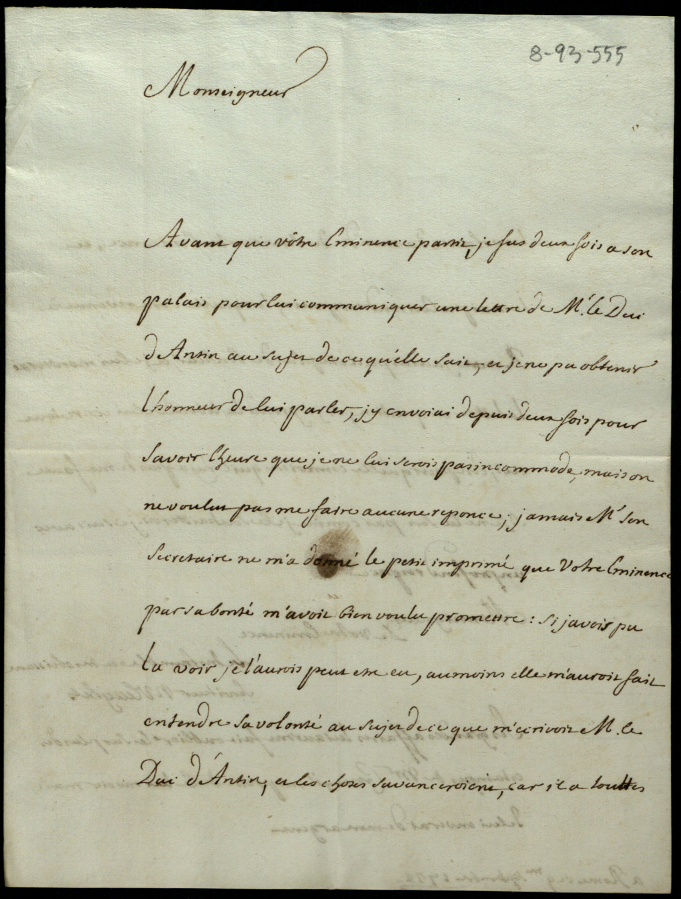 8-93-555
Monseigneur
Avant que vôtre Eminence partit, je fus deux fois a son
palais pour lui communiquer une lettre de Mr. le Duc
d'Antin au sujet de ce qu'elle sait, et je ne pu obtenir
l'honneur de lui parler, j'y envoiai depuis deux fois pour
savoir l'heure que je ne lui serois pas incommode, mais on
ne voulut pas me faire aucune reponce; jamais Mr. son
secretaire ne m'a donné le petit imprimé que Votre Eminence
par sa bonté m'avoit bien voulu promettre: si j'avois pu
la voir je l'aurois peut etre eu, au moins elle m'auroit fait
entendre sa volonté au sujet de ce que m'ecrivoit M. le
Duc d'Antin, et les choses s'avanceroient, car il a touttes